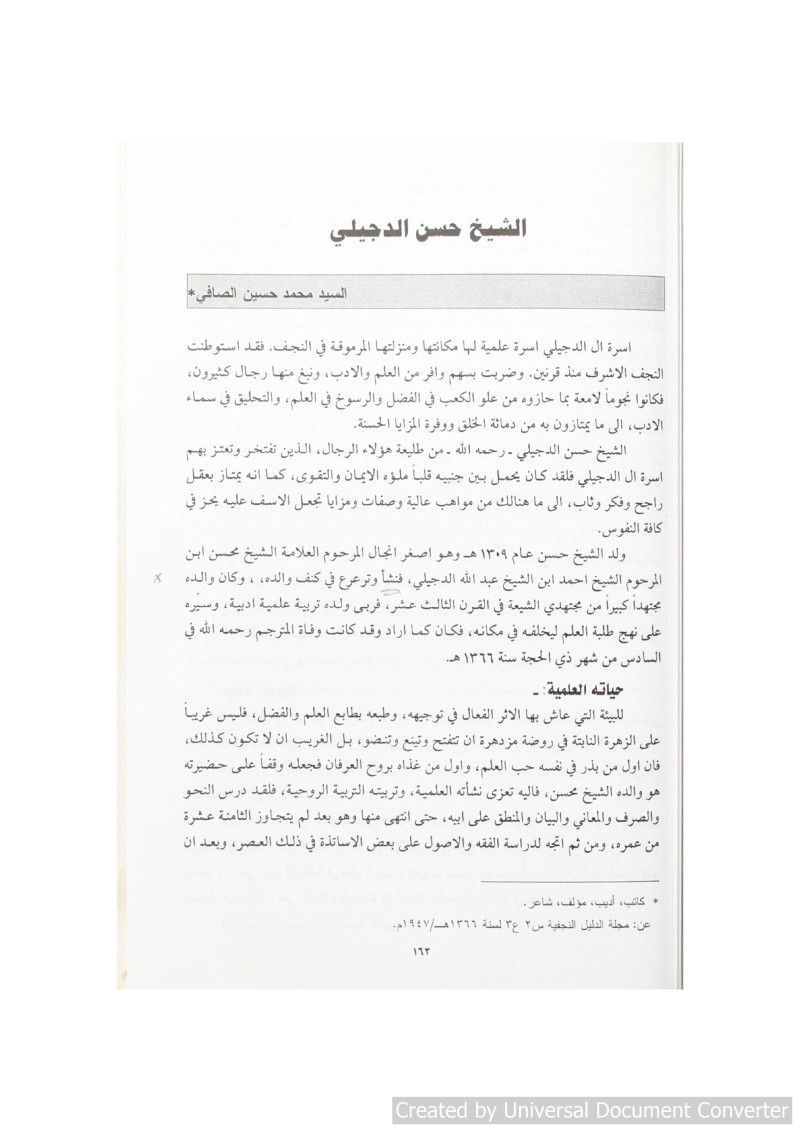 الشيخ حسن الدجيلي
السيد محمد حسين الصافي*
اسرة ال الدجيلي اسرة علمية لها مكانتها ومنزلتها المرموقة في النجف. فقد استوطنت
النجف الاشرف منذ قرنين. وضربت بسهم وافر من العلم والادب، ونبغ منها رجال كثيرون،
فكانوا نجوماً لامعة بما حازوه من علو الكعب في الفضل والرسوخ في العلم، والتحليق في سماء
الادب، الى ما يمتازون به من دماثة الخلق ووفرة المزايا الحسنة.
الشيخ حسن الدجيلي ـ رحمه الله ـ من طليعة هؤلاء الرجال، الذين تفتخر وتعتز بهم
اسرة ال الدجيلي فلقد كان يحمل بين جنبيه قلباً ملؤه الايمان والتقوى، كما انه يمتاز بعقل
راجح وفكر وثاب، الى ما هنالك من مواهب عالية وصفات ومزايا تجعل الاسف عليه يحز في
كافة النفوس.
ولد الشيخ حسن عام ١٣٠٩ هـ وهو اصغر انجال المرحوم العلامة الشيخ محسن ابن
المرحوم الشيخ احمد ابن الشيخ عبد الله الدجيلي، فنشأ وترعرع في كنف والده، ، وكان والده
مجتهداً كبيراً من مجتهدي الشيعة في القرن الثالث عشر، فربى ولده تربية علمية ادبية، وسيّره
على نهج طلبة العلم ليخلفه في مكانه، فكان كما اراد وقد كانت وفاة المترجم رحمه الله في
السادس من شهر ذي الحجة سنة ١٣٦٦ هـ.
حياته العلمية: ـ
للبيئة التي عاش بها الاثر الفعال في توجيهه، وطبعه بطابع العلم والفضل، فليس غريباً
على الزهرة النابتة في روضة مزدهرة ان تتفتح وتينع وتنضو، بل الغريب ان لا تكون كذلك،
فان اول من بذر في نفسه حب العلم، واول من غذاه بروح العرفان فجعله وقفاً على حضيرته
هو والده الشيخ محسن، فاليه تعزى نشأته العلمية، وتربيته التربية الروحية، فلقد درس النحو
والصرف والمعاني والبيان والمنطق على ابيه، حتى انتهى منها وهو بعد لم يتجاوز الثامنة عشرة
من عمره، ومن ثم اتجه لدراسة الفقه والاصول على بعض الاساتذة في ذلك العصر، وبعد ان
* كاتب، أديب، مؤلف، شاعر.
عن: مجلة الدليل النجفية س٢ ع٣ لسنة ١٣٦٦هـ/١٩٤٧م.
١٦٣
Created by Universal Document Converter